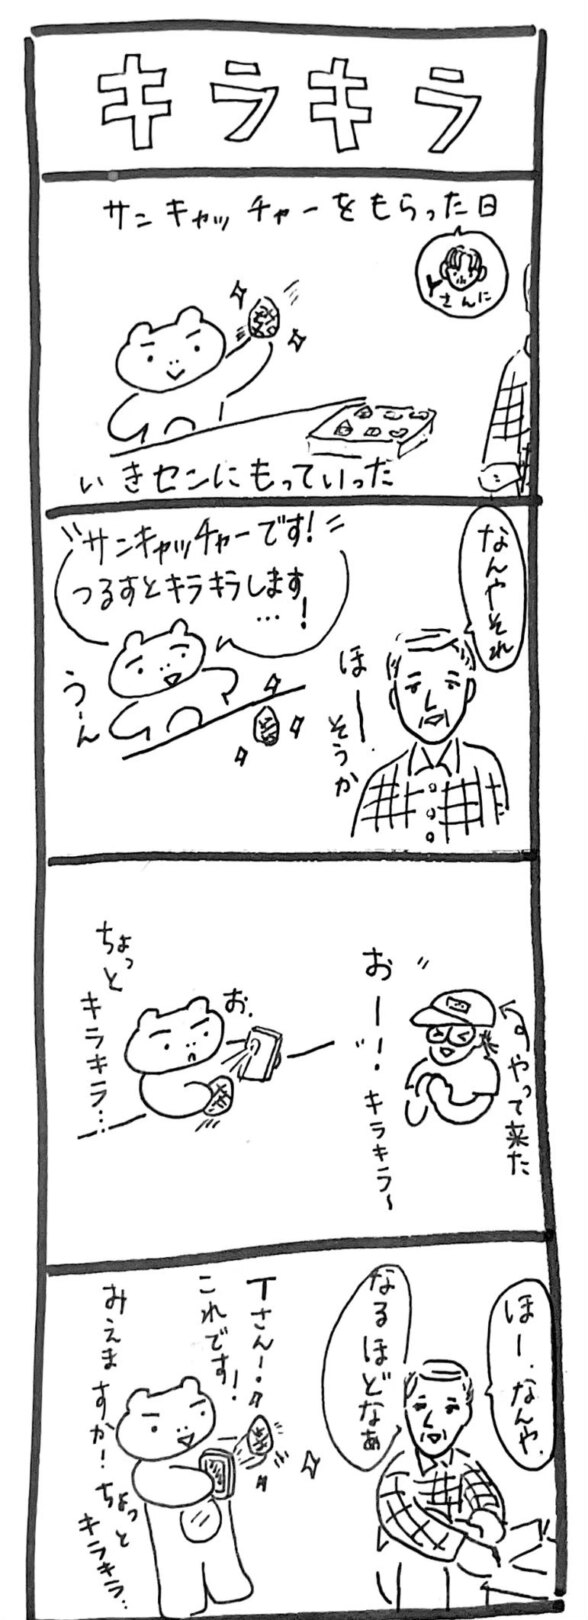 キラキラ
サンキャッチャーをもらった日
Yさんに
いきセンにもっていった
なんやそれ
サンキャッチャーです！
つるすとキラキラします
…！
うーん
ほー
そうか
やって来た
おー！
キラキラ〜
お。
ちょっと
キラキラ…
ほー、なんや、
なるほどなぁ
Tさん！
これです！
みえますか！ちょっと
キラキラ…